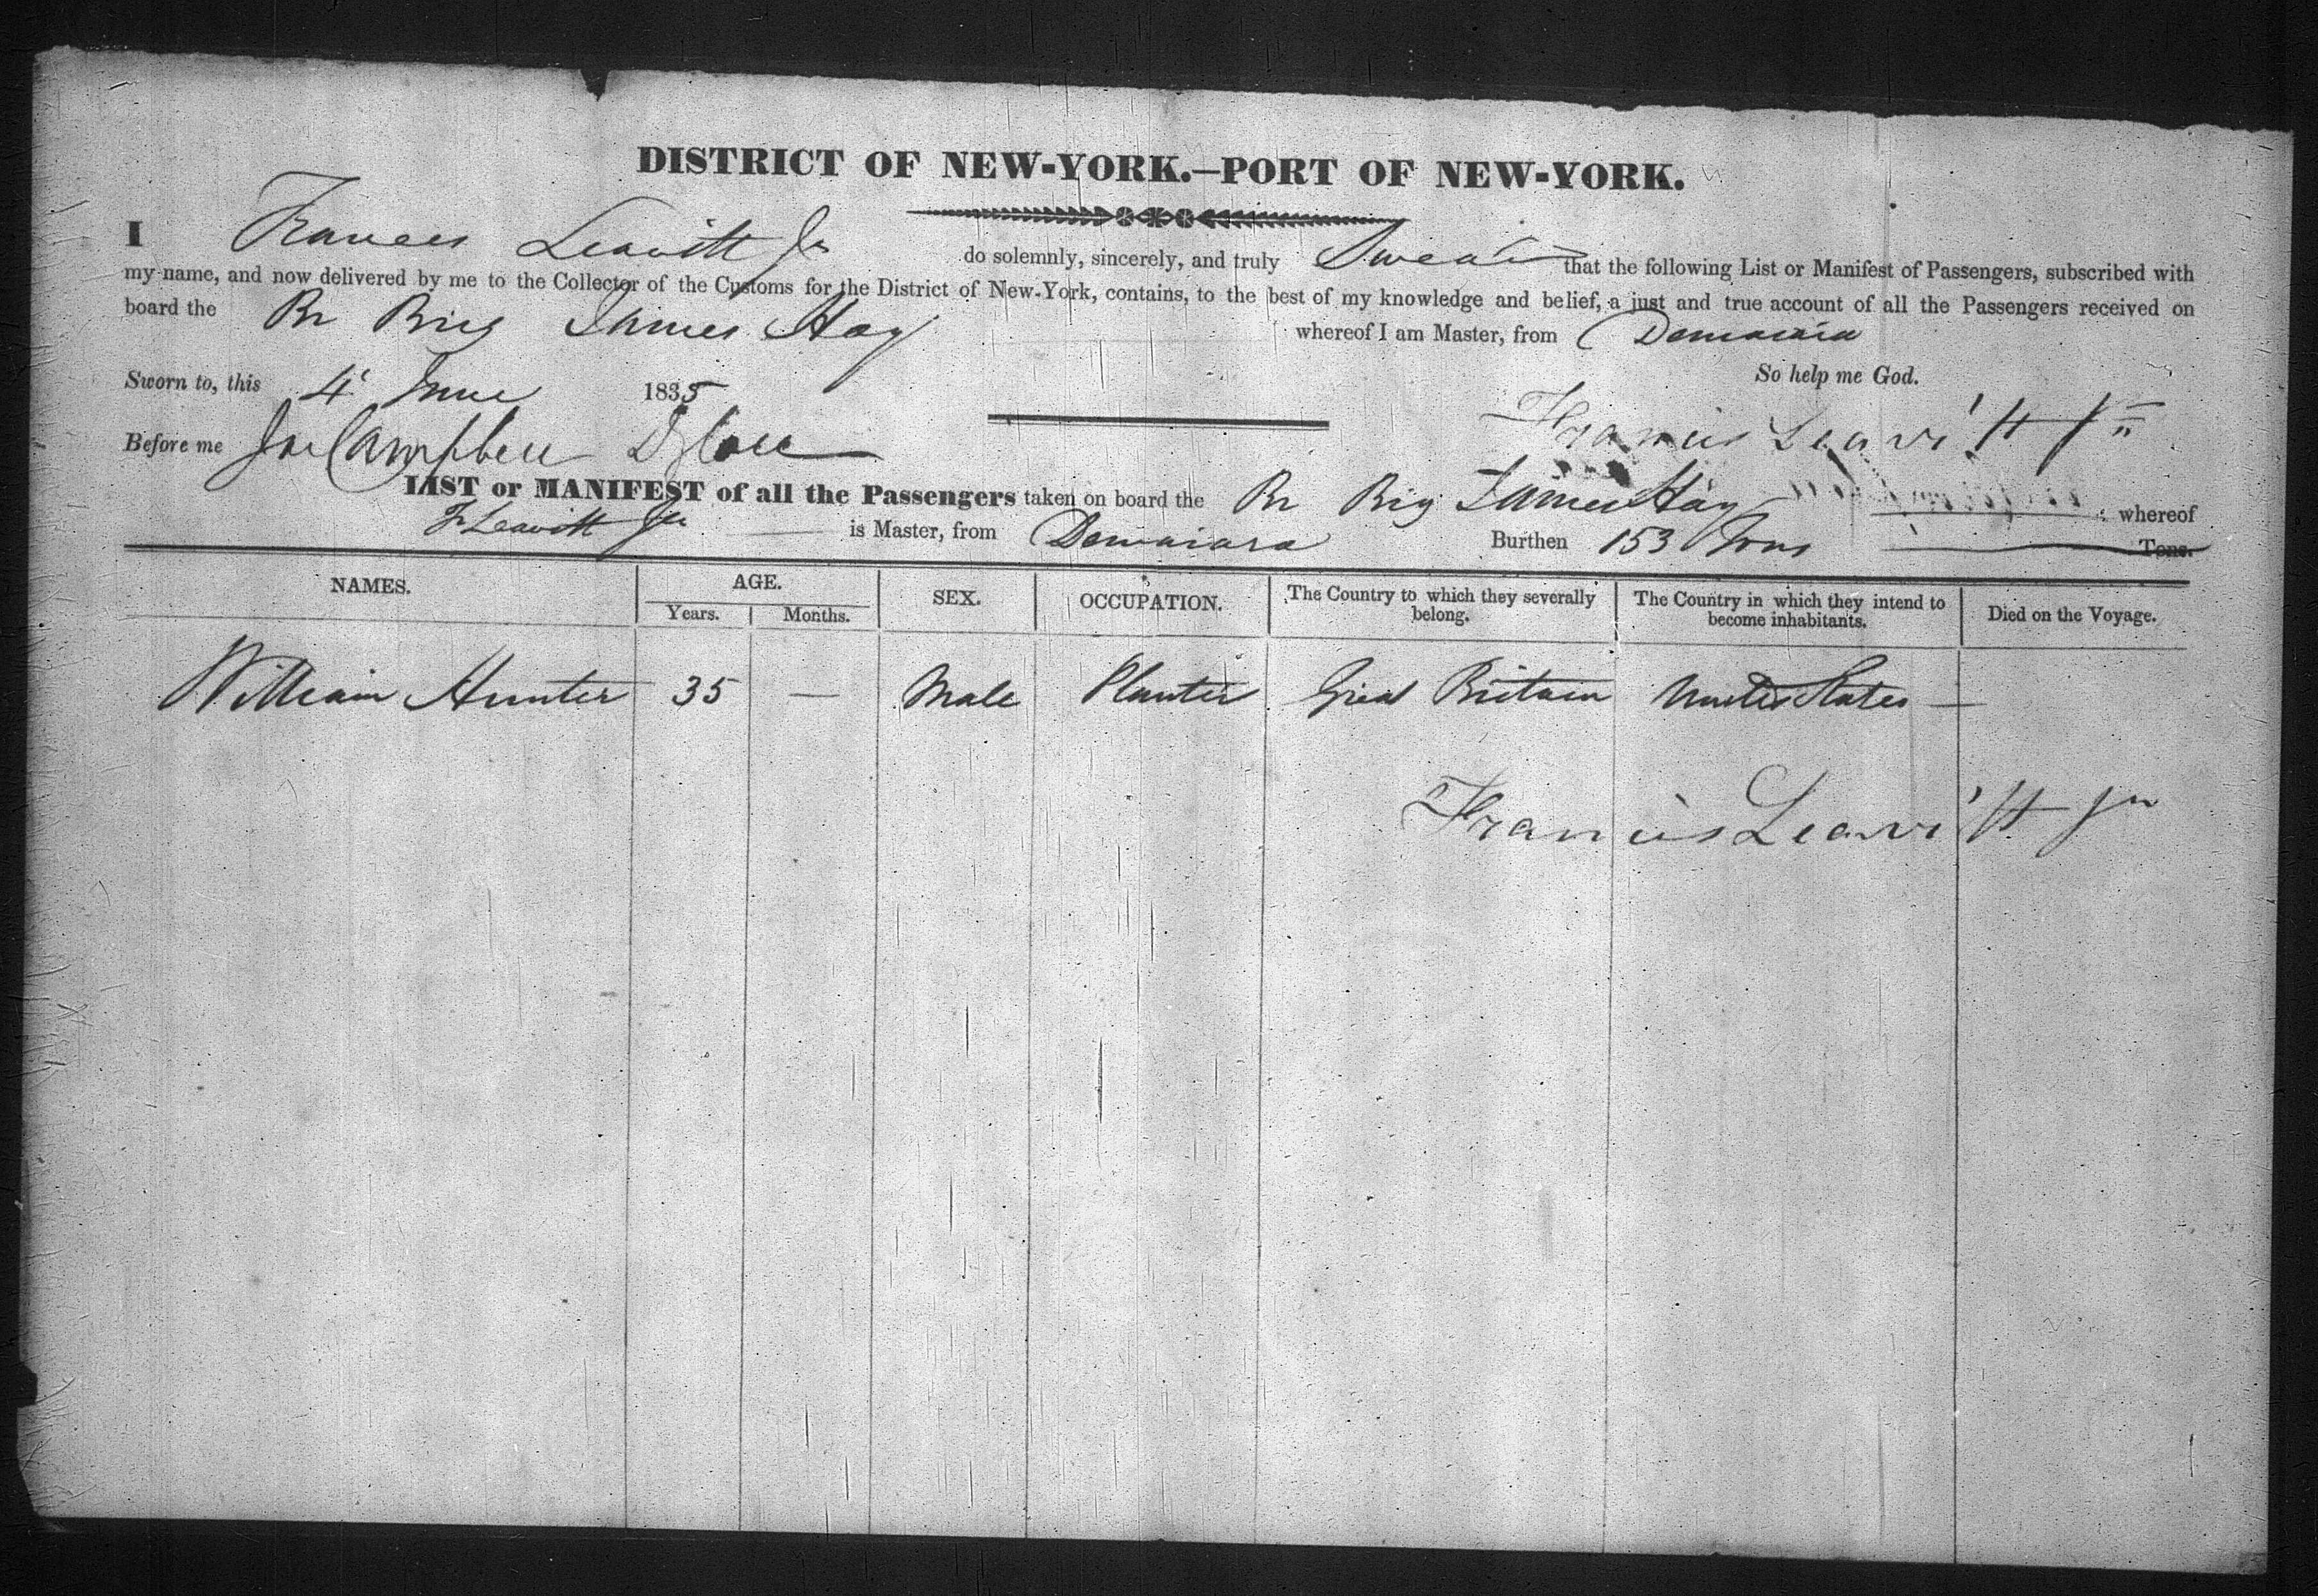 DISTRICT OF NEW-YORK.—PORT OF NEW-YORK.
I Frances Leavitt Jr do solemnly, sincerely, and truly Swear that the following List or Manifest of Passengers, subscribed with
my name, and now delivered by me to the Collector of the Customs for the District of New-York, contains, to the best of my knowledge and belief, a just and true account of all the Passengers received on
board the Br Brig James Hay whereof I am Master, from Demarara
So help me God.
Sworn to, this 4 June 1835
Francis Leavitt Jr
Before me Campbell
LIST or MANIFEST of all the Passengers taken on board the Br Brig James Hay whereof
F Leavitt Jr is Master, from Demarara Burthen 153 Tons Tons.
NAMES. AGE. SEX. OCCUPATION. The Country to which they severally belong. The Country in which they intend to become inhabitants. Died on the Voyage.
Years. Months.
William Hunter 35 — Male Planter Great Britain United States —
Francis Leavitt Jr